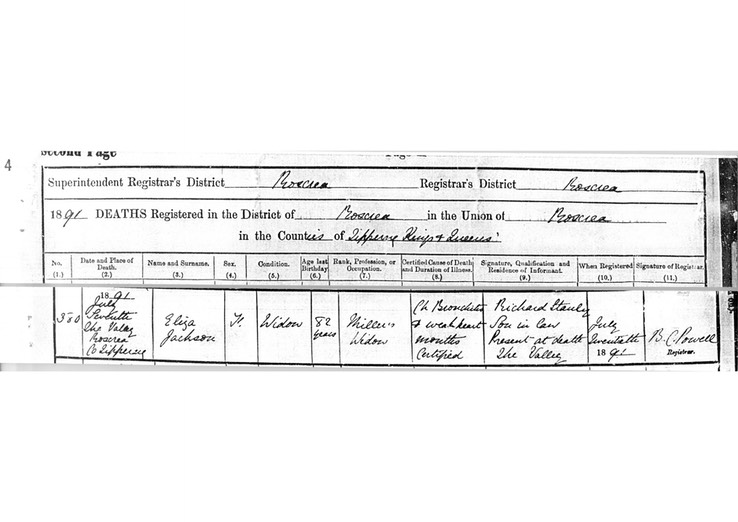 4
Second Page
Page
Superintendent Registrar's District Roscrea Registrar's District Roscrea
1891 DEATHS Registered in the District of Roscrea in the Union of Roscrea
in the Counties of Tipperary Kings & Queens'
No. Date and Place of Death. Name and Surname. Sex. Condition. Age last Birthday Rank, Profession, or Occupation. Certified Cause of Death and Duration of Illness. Signature, Qualification and Residence of Informant. When Registered Signature of Registrar.
(1.) (2.) (3.) (4.) (5.) (6.) (7.) (8.) (9.) (10.) (11.)
380 1891 July Seventh The Valley Roscrea Co Tipperary
Eliza Jackson
F.
Widow
82 years
Miller's Widow
Ch Bronchitis & weak heart months Certified
Richard Stanly Son in law Present at death The Valley
July Twentieth 1891
B. C. Powell
Registrar.